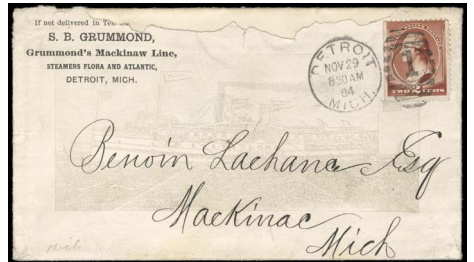 If not delivered in Ten
S. B. GRUMMOND,
Grummond's Mackinaw Line,
STEAMERS FLORA AND ATLANTIC,
DETROIT, MICH.
DETROIT
NOV 29
830 AM
84
MICH.
1
TWO CENTS
Benoin Lachanc Esq
Mackinac
Mich
Mich